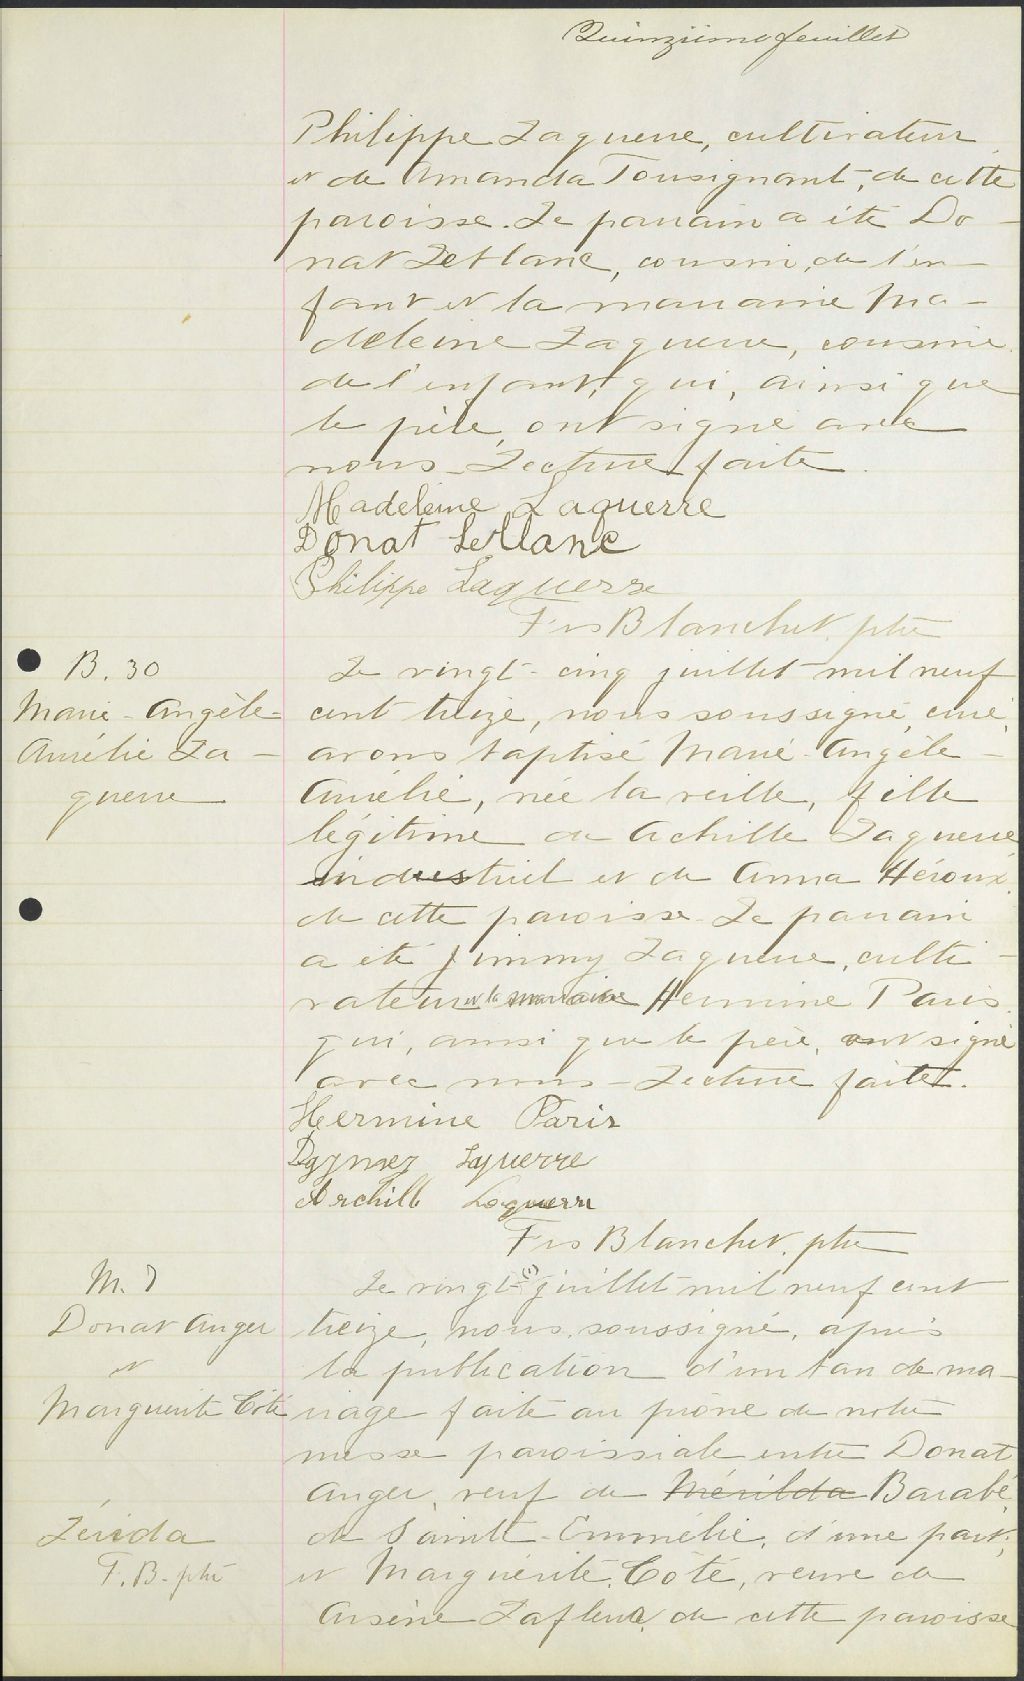 Quinzième feuillet
Philippe Laguerre, cultivateur
et de Amanda Tousignant, de cette
paroisse. Le parrain a été Do-
nat Leblanc, cousin de l'en-
fant et la marraine Ma-
deleine Laguerre, cousine
de l'enfant, qui, ainsi que
le père, ont signé avec
nous. Lecture faite.
Madeleine Laguerre
Donat Leblanc
Philippe Laguerre
Frs Blanchet, ptre
B. 30
Marie-Angèle-
Aurélie La-
guerre
Le vingt-cinq juillet mil neuf
cent treize, nous soussigné, curé,
avons baptisé Marie-Angèle-
Aurélie, née la veille, fille
légitime de Achille Laguerre
industriel et de Anna Héroux
de cette paroisse. Le parrain
a été Jimmy Laguerre, culti-
vateur et la marraine Hermine Paris
qui, ainsi que le père, ont signé
avec nous. Lecture faite.
Hermine Paris
Laguerre
Archille Laguerre
Frs Blanchet, ptre
M. 7
Donat Auger
et
Marguerite Côté
Zérida
F. B. ptre
Le vingt- juillet mil neuf cent
treize, nous, soussigné, après
la publication d'un ban de ma-
riage faite au prône de notre
messe paroissiale entre Donat
Auger, veuf de Mérilda Barabé,
de Sainte-Emmélie, d'une part,
et Marguérite Côté, veuve de
Arsène Lafleur, de cette paroisse